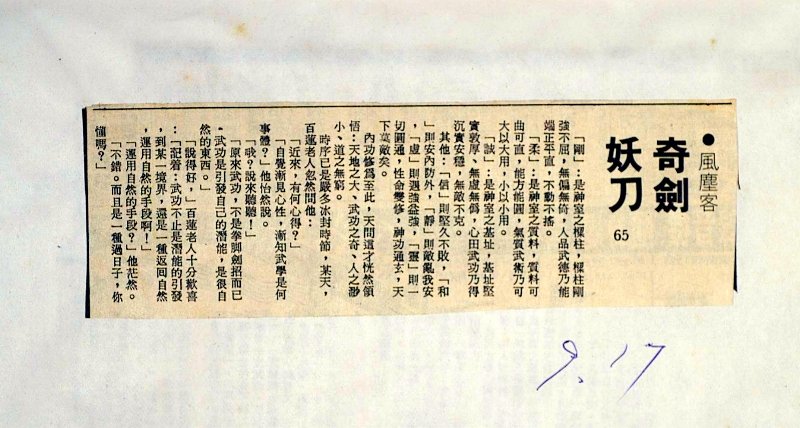 ●風塵客
奇劍
妖刀
65
「剛」：是神室之樑柱，樑柱剛
強不屈，無偏無倚，人品武德乃能
端正平直，不動不搖。
「柔」：是神室之質料，質料可
曲可直，能方能圓，氣質武術乃可
大以大用，小以小用。
「誠」：是神室之基址，基址堅
實敦厚、無虛無偽，心田武功乃得
沉實安穩，無敵不克。
其他：「信」則堅久不敗，「和
」則安內防外，「靜」則敵亂我安
，「虛」則遇強益強，「靈」則一
切圓通，性命雙修，神功通玄，天
下莫敵矣。
內功修為至此，天問這才恍然領
悟：天地之大、武功之奇、人之渺
小、道之無窮。
時序已是嚴冬冰封時節，某天，
百蓮老人忽然問他：
「近來，有何心得？」
「自覺漸見心性，漸知武學是何
事體？」他怡然說。
「哦？說來聽聽！」
「原來武功，不是拳脚劍招而已
，武功是引發自己的潛能，是很自
然的東西。」
「說得好，」百蓮老人十分歡喜
：「記着：武功不止是潛能的引發
，到某一境界，還是一種返回自然
，運用自然的手段啊！」
「運用自然的手段？」他茫然。
「不錯。而且是一種過日子，你
懂嗎？」
9.17